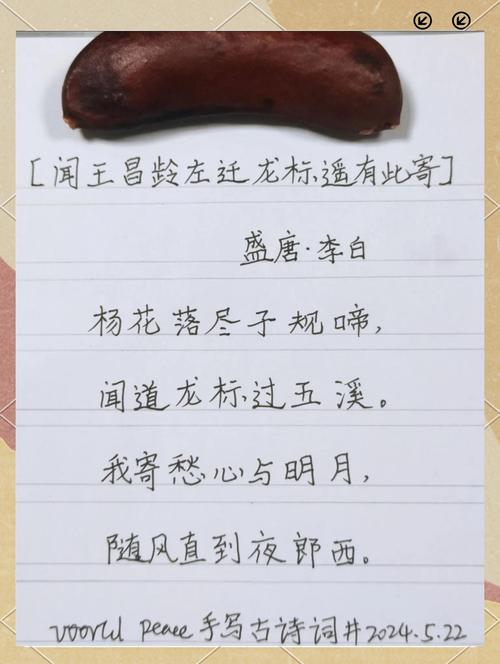 [闻王昌龄左迁龙标遥有此寄]
盛唐·李白
杨花落尽子规啼,
闻道龙标过五溪。
我寄愁心与明月,
随风直到夜郎西。
woorld peace手写古诗词#2024.5.22